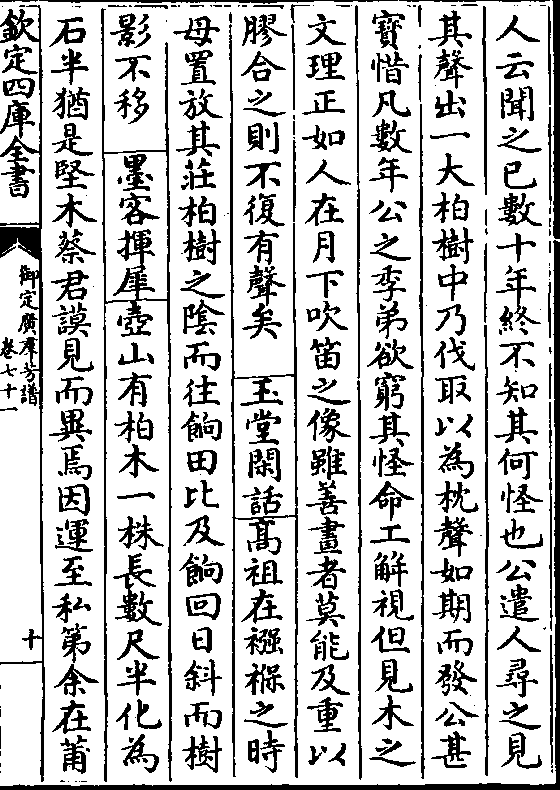 人云聞之已數十年終不知其何怪也公遣人尋之見
其聲出一大柏樹中乃伐取以為枕聲如期而發公甚
寶惜凡數年公之季弟欲窮其怪命工解視但見木之
文理正如人在月下吹笛之像雖善畫者莫能及重以
膠合之則不復有聲矣 玉堂閑話高祖在襁褓之時
母置放其莊柏樹之陰而往餉田比及餉回日斜而樹
影不移 墨客揮犀壺山有柏木一株長數尺半化為
石半猶是堅木蔡君謨見而異焉因運至私第余在莆
欽定四庫全書
御定廣羣芳譜
卷七十一
十